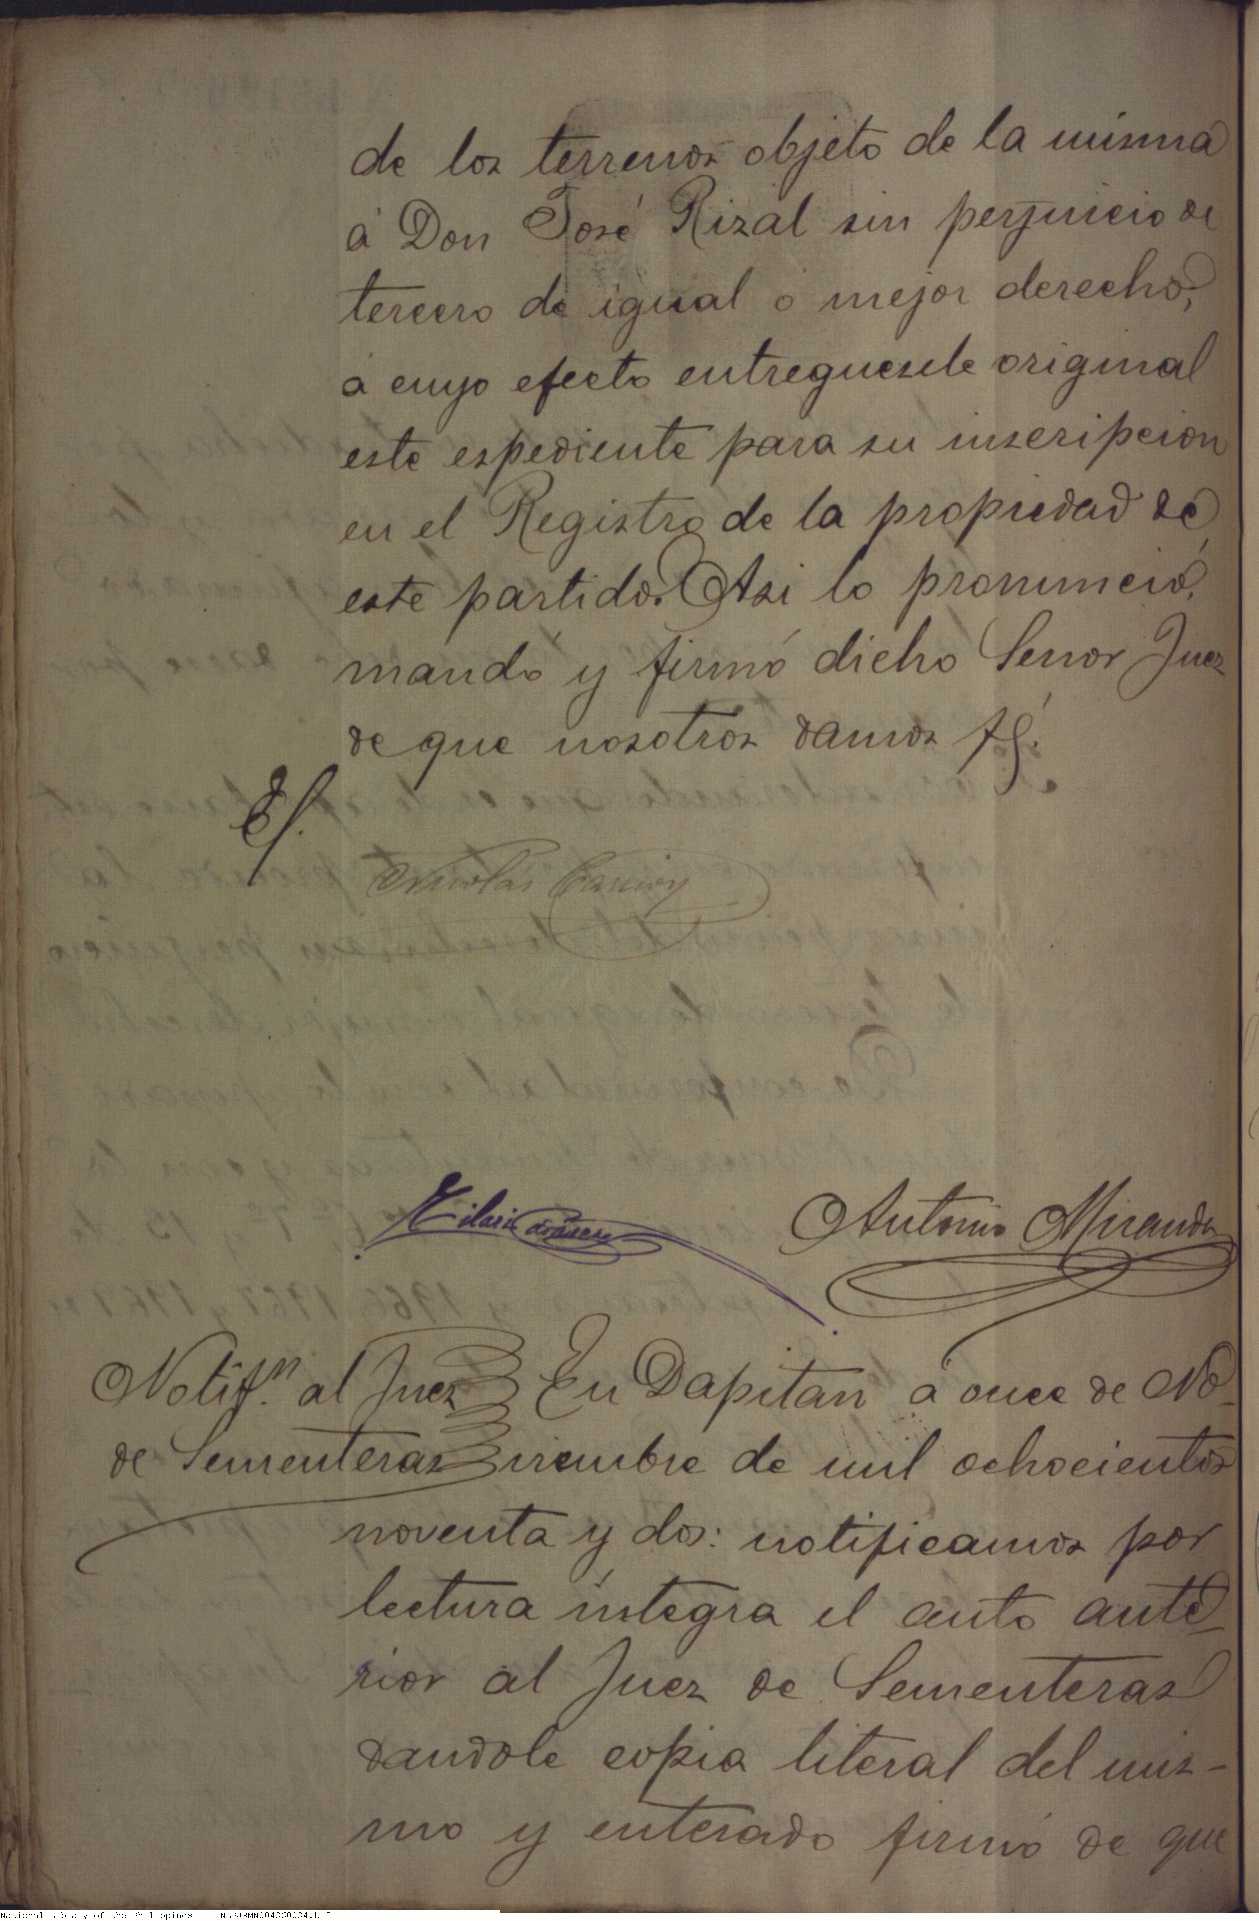 de los terrenos objeto de la misma
á Don José Rizal sin perjuicio de
tercero de igual o mejor derecho,
á cuyo efecto entreguesele original
este espediente para su inscripcion
en el Registro de la propiedad de
este partido. Asi lo pronunció,
mandó y firmó dicho Señor Juez
de que nosotros damos fé.
Nicolás
Hilario
Antonio Miranda
Notifn. al Juez
de Sementeras
En Dapitan á once de No-
viembre de mil ochocientos
noventa y dos: notificamos por
lectura íntegra el auto ante-
rior al Juez de Sementeras
dandole copia literal del mis-
mo y enterado firmó de que
National Library of the Philippines